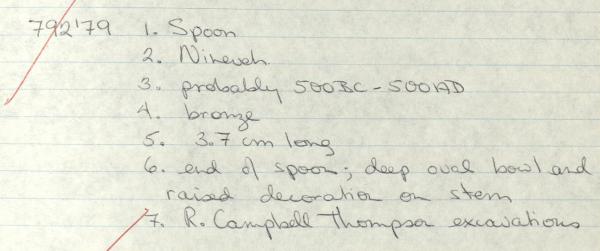 792'79 1. Spoon
2. Nineveh
3. probably 500BC-500AD
4. bronze
5. 3.7 cm long
6. end of spoon; deep oval bowl and
raised decoration on stem
7. R. Campbell Thompson excavations